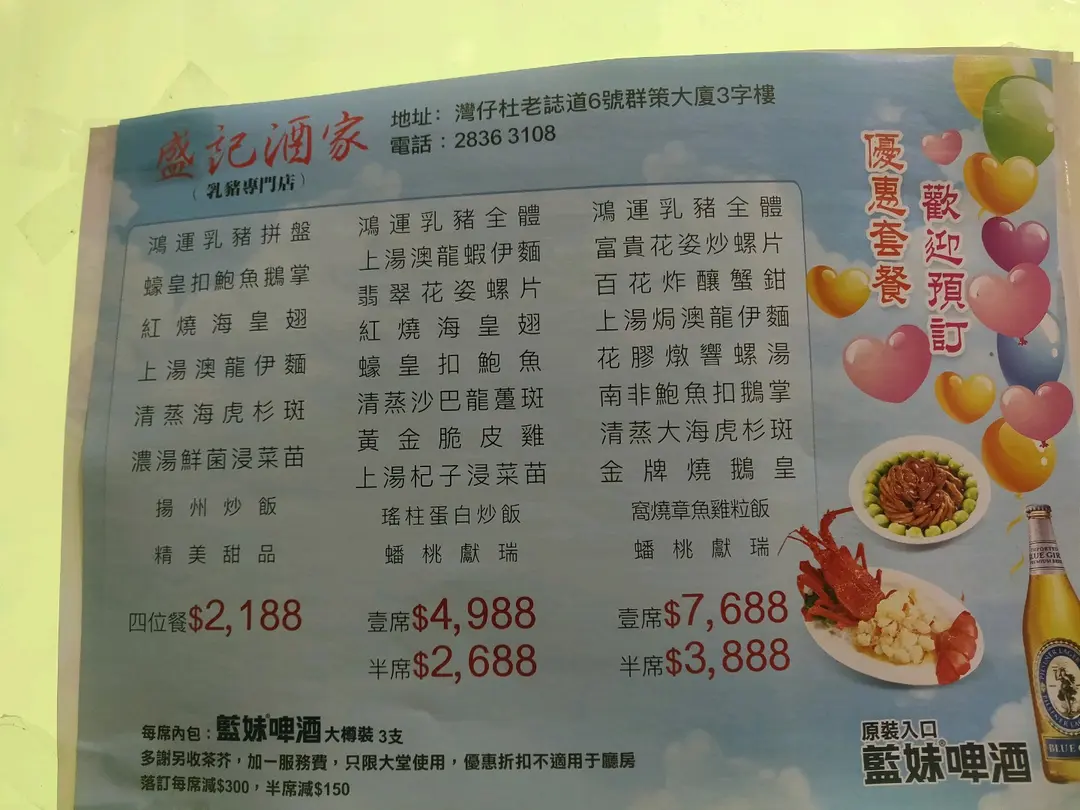 盛記酒家
（乳豬專門店）
地址：灣仔杜老誌道6號群策大廈3字樓
電話：2836 3108
優惠套餐
歡迎預訂
鴻運乳豬拼盤
蠔皇扣鮑魚鵝掌
紅燒海皇翅
上湯澳龍伊麵
清蒸海虎杉斑
濃湯鮮菌浸菜苗
揚州炒飯
精美甜品
四位餐$2,188
鴻運乳豬全體
上湯澳龍蝦伊麵
翡翠花姿螺片
紅燒海皇翅
蠔皇扣鮑魚
清蒸沙巴龍躉斑
黃金脆皮雞
上湯杞子浸菜苗
瑤柱蛋白炒飯
蟠桃獻瑞
壹席$4,988
半席$2,688
鴻運乳豬全體
富貴花姿炒螺片
百花炸釀蟹鉗
上湯焗澳龍伊麵
花膠燉響螺湯
南非鮑魚扣鵝掌
清蒸大海虎杉斑
金牌燒鵝皇
窩燒章魚雞粒飯
蟠桃獻瑞
壹席$7,688
半席$3,888
每席內包：藍妹啤酒大樽裝 3支
多謝另收茶芥，加一服務費，只限大堂使用，優惠折扣不適用于廳房
落訂每席減$300，半席減$150
原裝入口
藍妹啤酒